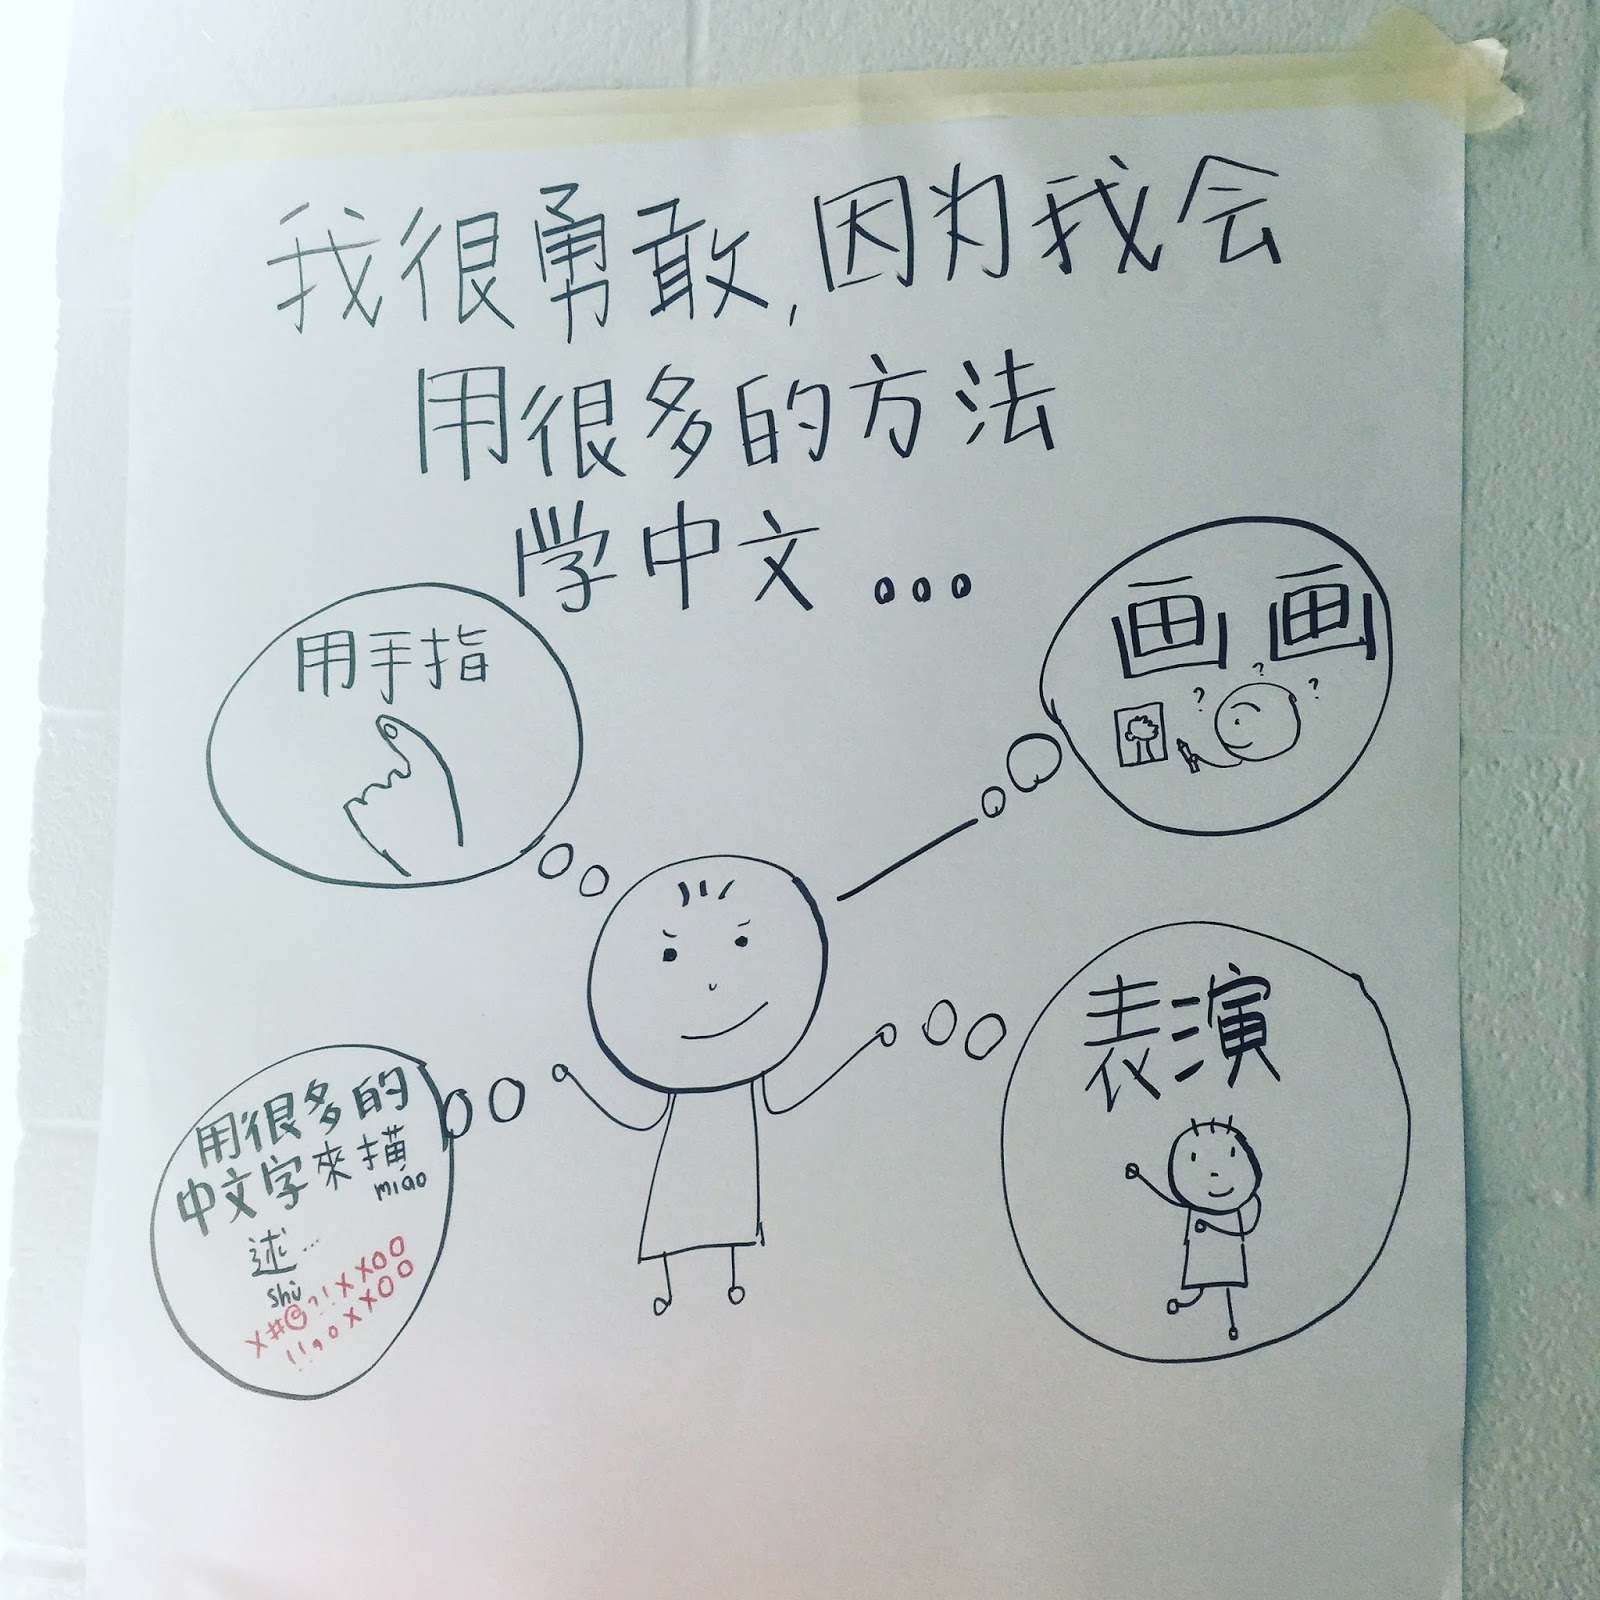 我很勇敢,因为我会
用很多的方法
学中文...
用手指
画画
? ? ?
用很多的
中文字來描
miáo
述...
shù
x#@?!xxoo
!!90xxoo
表演